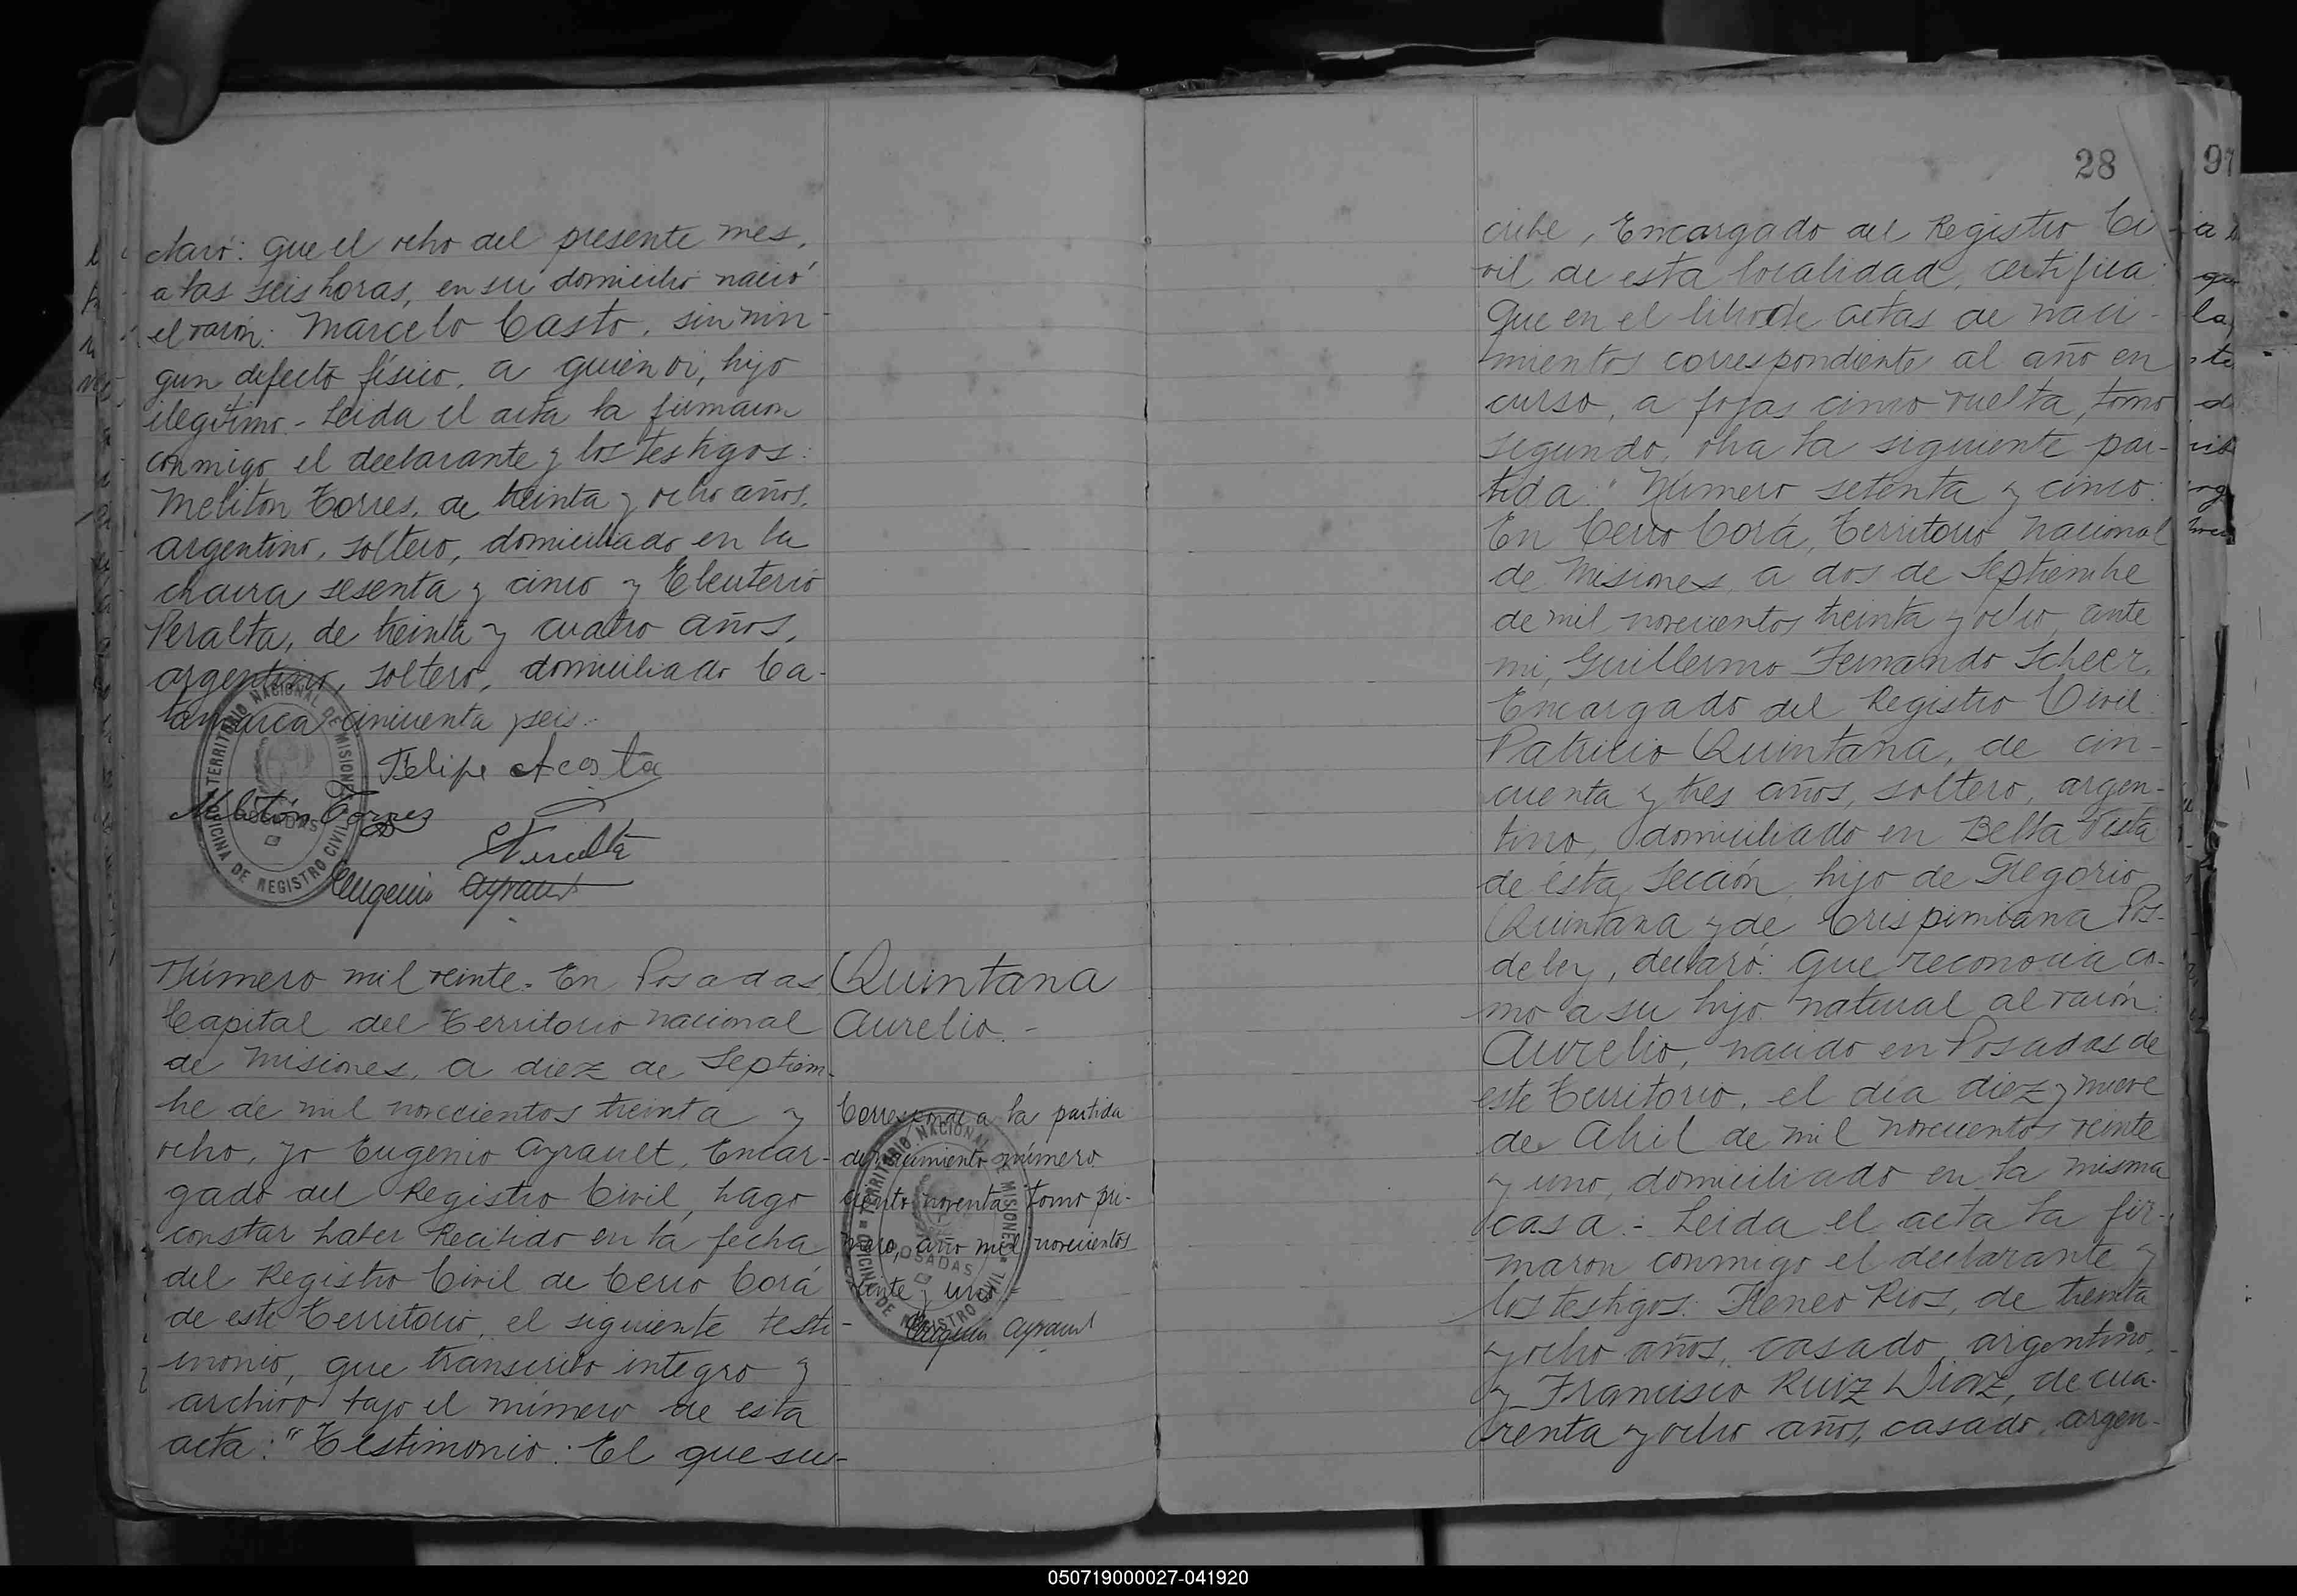 claró: que el ocho del presente mes,
a las seis horas, en su domicilio nació
el varón: Marcelo Casto, sin nin-
gun defecto físico, a quien vi, hijo
ilegítimo.- Leida el acta la firmaron
conmigo el declarante y los testigos:
Meliton Torres, de treinta y ocho años,
argentino, soltero, domiciliado en la
chacra sesenta y cinco y Eleuterio
Peralta, de treinta y cuatro años,
argentino, soltero, domiciliado Ca-
tamarca cincuenta y seis.-
Felipe Acosta
Melitón Torres
EPeralta
Eugenio Ayrault
TERRITORIO NACIONAL DE MISIONES
POSADAS
OFICINA DE REGISTRO CIVIL
Número mil veinte.- En Posadas,
Capital del Territorio nacional
de Misiones, a diez de Septiem-
bre de mil novecientos treinta y
ocho, yo Eugenio Ayrault, Encar-
gado del Registro Civil, hago
constar haber Recibido en la fecha
del Registro Civil de Cerro Corá
de este Territorio, el siguiente testi-
monio, que transcribo integro y
archivo bajo el número de esta
acta: "Testimonio: El que sus-
Quintana
Aurelio.-
Corresponde a la partida
de nacimiento número
ciento noventa, tomo pri-
mero, año mil novecientos
veinte y uno.-
Eugenio Ayrault
TERRITORIO NACIONAL DE MISIONES
POSADAS
OFICINA DE REGISTRO CIVIL
28
cribe, Encargado del Registro Ci-
vil de esta localidad, certifica:
Que en el libro de actas de naci-
mientos correspondiente al año en
curso, a fojas cinco vuelta, tomo
segundo, obra la siguiente par-
tida: "Número setenta y cinco:
En Cerro Corá, Territorio Nacional
de Misiones, a dos de Septiembre
de mil novecientos treinta y ocho, ante
mi, Guillermo Fernando Scheer,
Encargado del Registro Civil:
Patricio Quintana, de cin-
cuenta y tres años, soltero, argen-
tino, domiciliado en Bella Vista
de ésta Sección, hijo de Gregorio
Quintana y de Crispiniana Pos-
deley, declaró: Que reconocia co-
mo a su hijo natural al varón:
Aurelio, nacido en Posadas de
este Territorio, el día diez y nueve
de Abril de mil novecientos veinte
y uno, domiciliado en la misma
casa.- Leida el acta la fir-
maron conmigo el declarante y
los testigos: Ireneo Rios, de treinta
y ocho años, casado, argentino,
y Francisco Ruiz Diaz, de cua-
renta y ocho años, casado, argen-
97
050719000027-041920